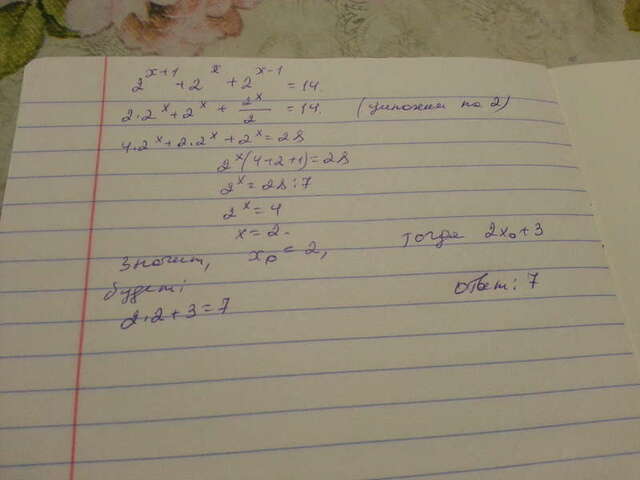 2^(x+1) + 2^x + 2^(x-1) = 14.
2·2^x + 2^x + 2^x/2 = 14. (умножим на 2)
4·2^x + 2·2^x + 2^x = 28
2^x(4+2+1) = 28
2^x = 28:7
2^x = 4
x = 2.
Значит, x₀ = 2, тогда 2x₀+3
будет:
2·2+3=7
ответ: 7